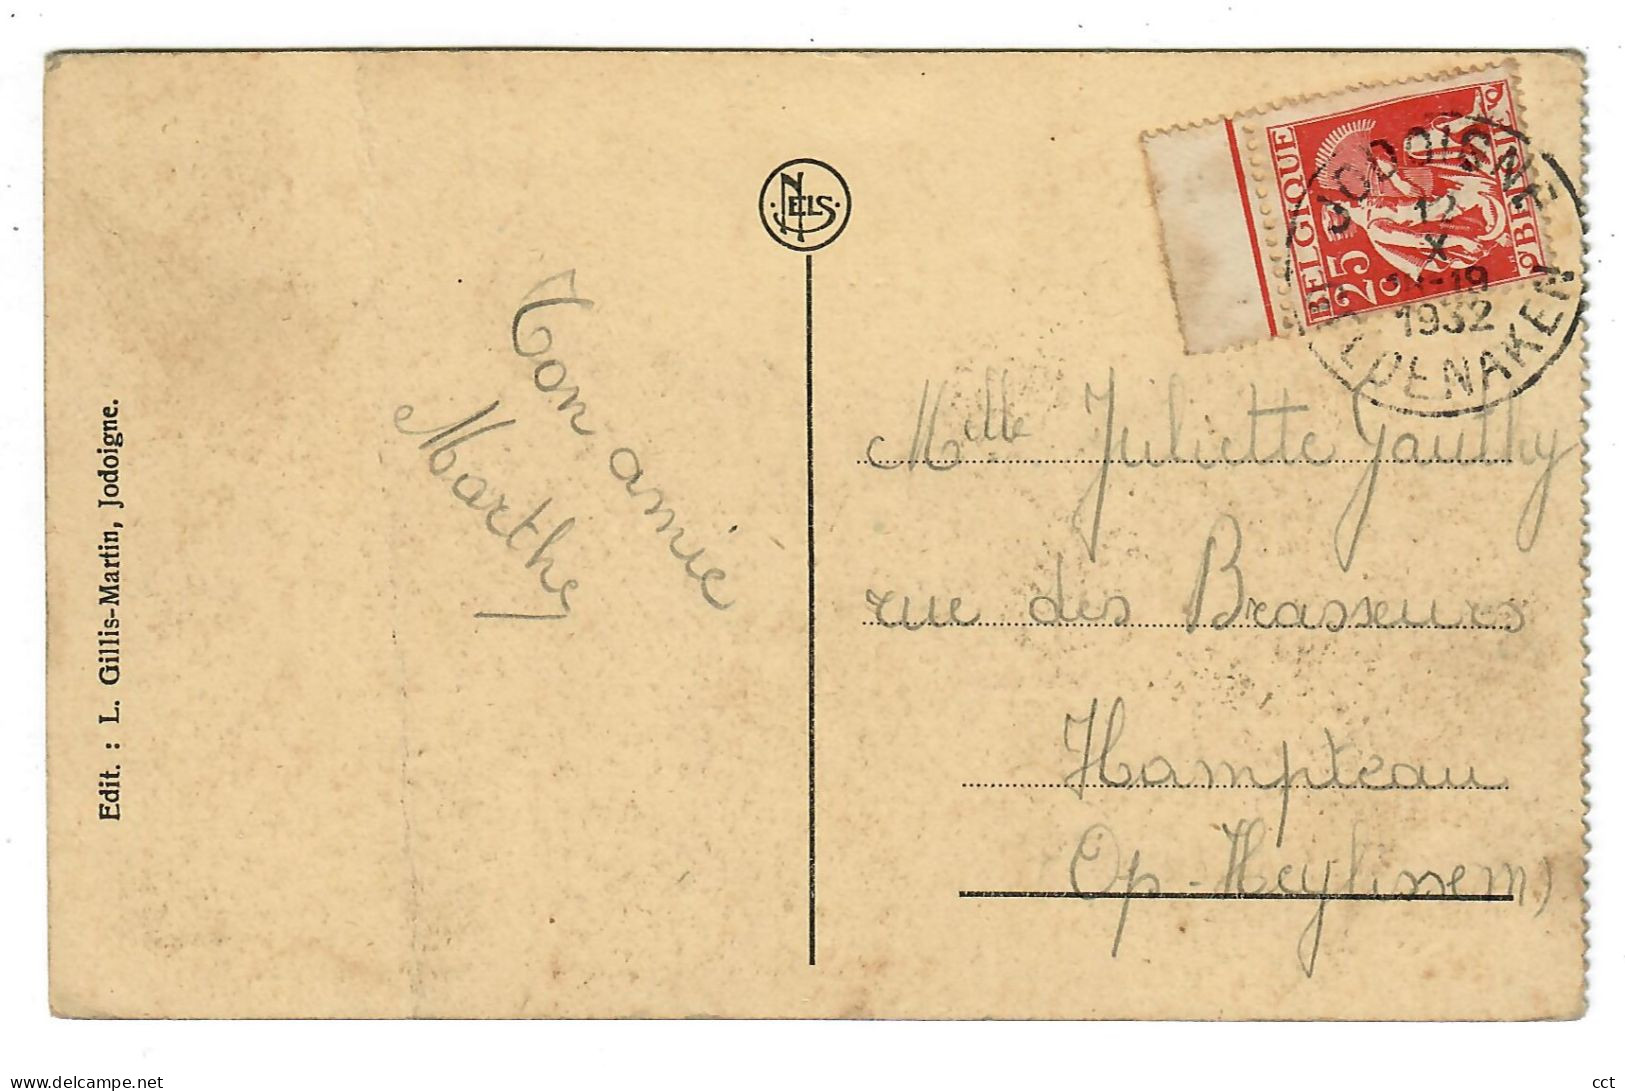 Edit. : L. Gillis-Martin, Jodoigne.
Ton amie
Marthe
NELS
BELGIQUE
25 C
BELGIE
JODOIGNE
12
X
-19
1932
GELDENAKEN
Melle Juliette Gauthy
rue des Brasseurs
Hampteau
Op-Heylissem)
cct